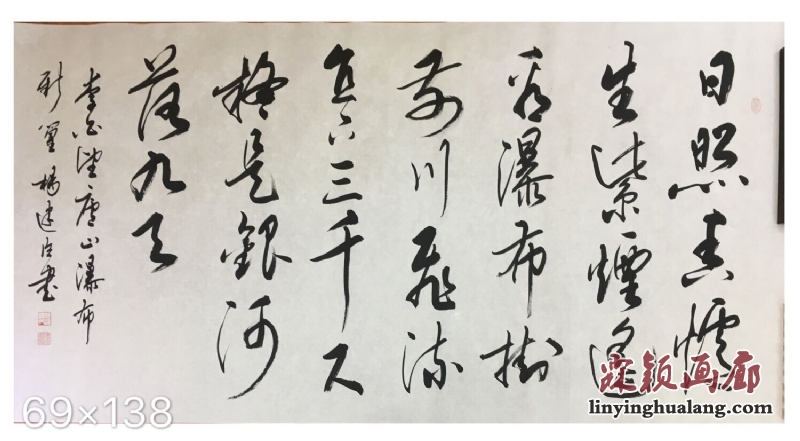 日照香爐
生紫煙遥
看瀑布掛
前川飛流
直下三千尺
疑是銀河
落九天
李白望廬山瀑布
楊建書
69×138
霖颖画廊
linyinghualang.com